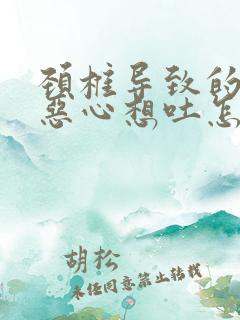 颈椎导致的
恶心想吐怎
胡松
未经同意禁止转载